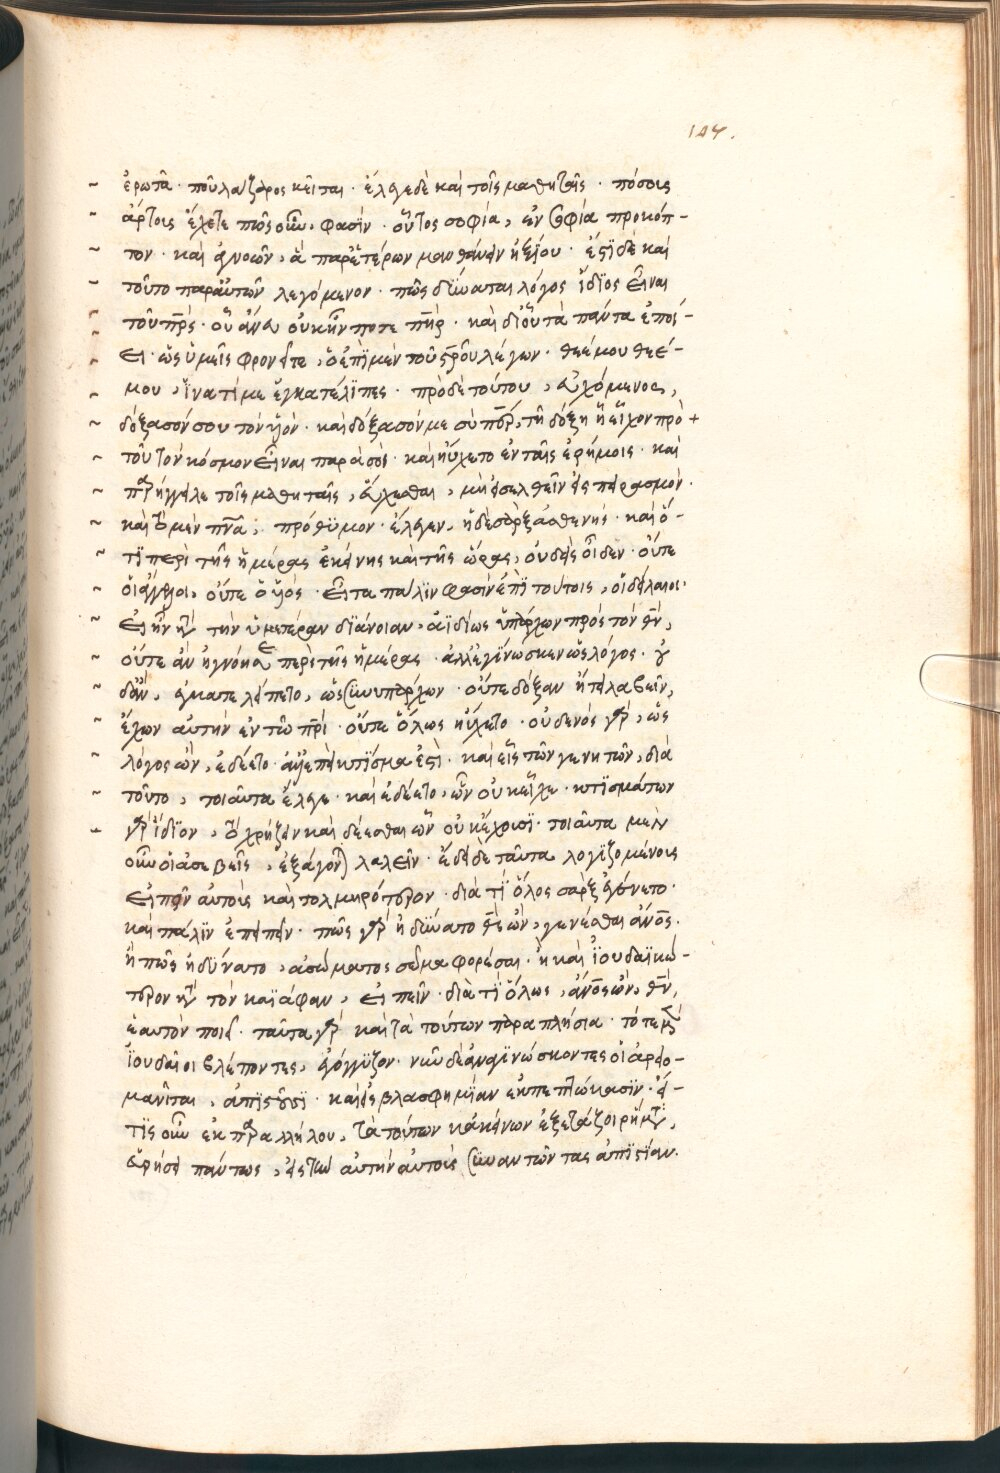 127.
ἐρωτᾷ · ποῦ λάζαρος κεῖται · ἔλεγε δὲ καὶ τοῖς μαθηταῖς · πόσους
ἄρτους ἔχετε πῶς οὖν, φασὶν · οὗτος σοφία, ἐν σοφία προκόπ-
τον · καὶ ἀγνοῶν, ἃ παρ' ἑτέρων μανθάνειν ἠξίου · ἔστι δὲ καὶ
τοῦτο παρ' αὐτῶν λεγόμενον · πῶς δύναται λόγος ἴδιος εἶναι
τοῦ πρς · οὗ ἄνευ οὐκ ἦν ποτε πηρ · καὶ δι' οὗ τὰ πάντα ἐποί-
ει · ὡς ὑμεῖς φρονεῖτε, ὁ ἐπὶ μὲν τοῦ σρου λέγων · θεέ μου θεέ-
μου, ἵνα τί με ἐγκατέλιπες · πρὸ δὲ τούτου, εὐχόμενος,
δόξασόν σου τὸν υἱόν · καὶ δόξασόν με σὺ περ, τῇ δόξῃ ᾗ εἶχον πρὸ +
τοῦ τὸν κόσμον εἶναι παρὰ σοὶ · καὶ ηὔχετο ἐν ταῖς ἐρήμοις · καὶ
παρήγγειλε τοῖς μαθηταῖς, εὔχεσθαι, μὴ εἰσελθεῖν εἰς πειρασμόν ·
καὶ τὸ μὲν πνα, πρόθυμον · ἔλεγεν, ἡ δὲ σὰρξ ἀσθενής · καὶ ὅ-
τι περὶ τῆς ἡμέρας ἐκείνης καὶ τῆς ὥρας, οὐδεὶς οἶδεν · οὔτε
οἱ ἄγγελοι, οὔτε ὁ υἱός · εἶτα πάλιν φασὶν ἐπὶ τούτοις, οἱ δείλαιοι ·
εἰ ἦν κατὰ τὴν ὑμετέραν διάνοιαν, ἀϊδίως ὑπάρχων πρὸς τὸν θν,
οὔτε ἂν ἠγνόησε περὶ τῆς ἡμέρας · ἀλλ' ἐγίνωσκεν ὡς λόγος · οὐ
δ' ἂν, ἐγκατελείπετο, ὡς συνυπάρχων · οὔτε δόξαν ᾔτει λαβεῖν,
ἔχων αὐτὴν ἐν τῷ πρί · οὔτε ὅλως ηὔχετο · οὐδενὸς γὰρ, ὡς
λόγος ὢν, ἐδέετο · ἀλλ' ἐπεὶ κτίσμα ἐστὶ · καὶ εἷς τῶν γενητῶν, διὰ
τοῦτο, τοιαῦτα ἔλεγε · καὶ ἐδέετο, ὧν οὐκ εἶχε · κτισμάτων
γὰρ ἴδιον, τὸ χρήζειν καὶ δέεσθαι ὧν οὐκ ἔχουσι · τοιαῦτα μὲν
οὖν οἱ ἀσεβεῖς, ἐξάγονται λαλεῖν · ἔδει δὲ ταῦτα λογιζομένους
εἰπεῖν αὐτοὺς καὶ τολμηρότερον · διὰ τί ὅλος σὰρξ ἐγένετο ·
καὶ πάλιν ἐπειπεῖν · πῶς γὰρ ἠδύνατο θς ὢν, γενέσθαι ἄνος ·
ἢ πῶς ἠδύνατο, ἀσώματος σῶμα φορέσαι · ἢ καὶ ἰουδαϊκώ-
τερον κατὰ τὸν καϊάφαν, εἰπεῖν · διὰ τί ὅλως, ἄνος ὢν, θν,
ἑαυτὸν ποιεῖ · ταῦτα γὰρ καὶ τὰ τούτων παραπλήσια · τότε μὲν
ἰουδαῖοι βλέποντες, ἐγόγγυζον · νῦν δὲ ἀναγινώσκοντες οἱ ἀρειο-
μανῖται, ἀπιστοῦσι · καὶ εἰς βλασφημίαν ἐκπεπτώκασιν · εἴ-
τις οὖν ἐκ παραλλήλου, τὰ τούτων κἀκείνων ἐξετάζοι ῥήματα,
εὑρήσει πάντως, εἰς τὴν αὐτὴν αὐτοὺς συναντῶντας ἀπιστίαν ·